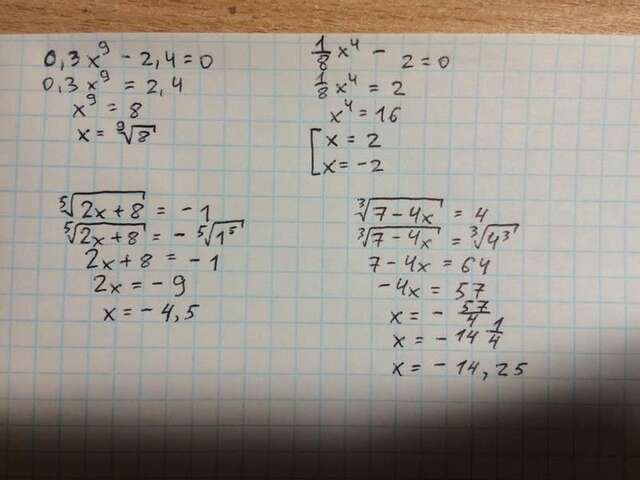 0,3x⁹ - 2,4 = 0
0,3x⁹ = 2,4
x⁹ = 8
x = ⁹√8
1/8 x⁴ - 2 = 0
1/8 x⁴ = 2
x⁴ = 16
[ x = 2
x = -2
⁵√(2x+8) = -1
⁵√(2x+8) = - ⁵√(1⁵)
2x + 8 = -1
2x = -9
x = -4,5
³√(7-4x) = 4
³√(7-4x) = ³√(4³)
7 - 4x = 64
-4x = 57
x = - 57/4
x = -14 1/4
x = -14,25